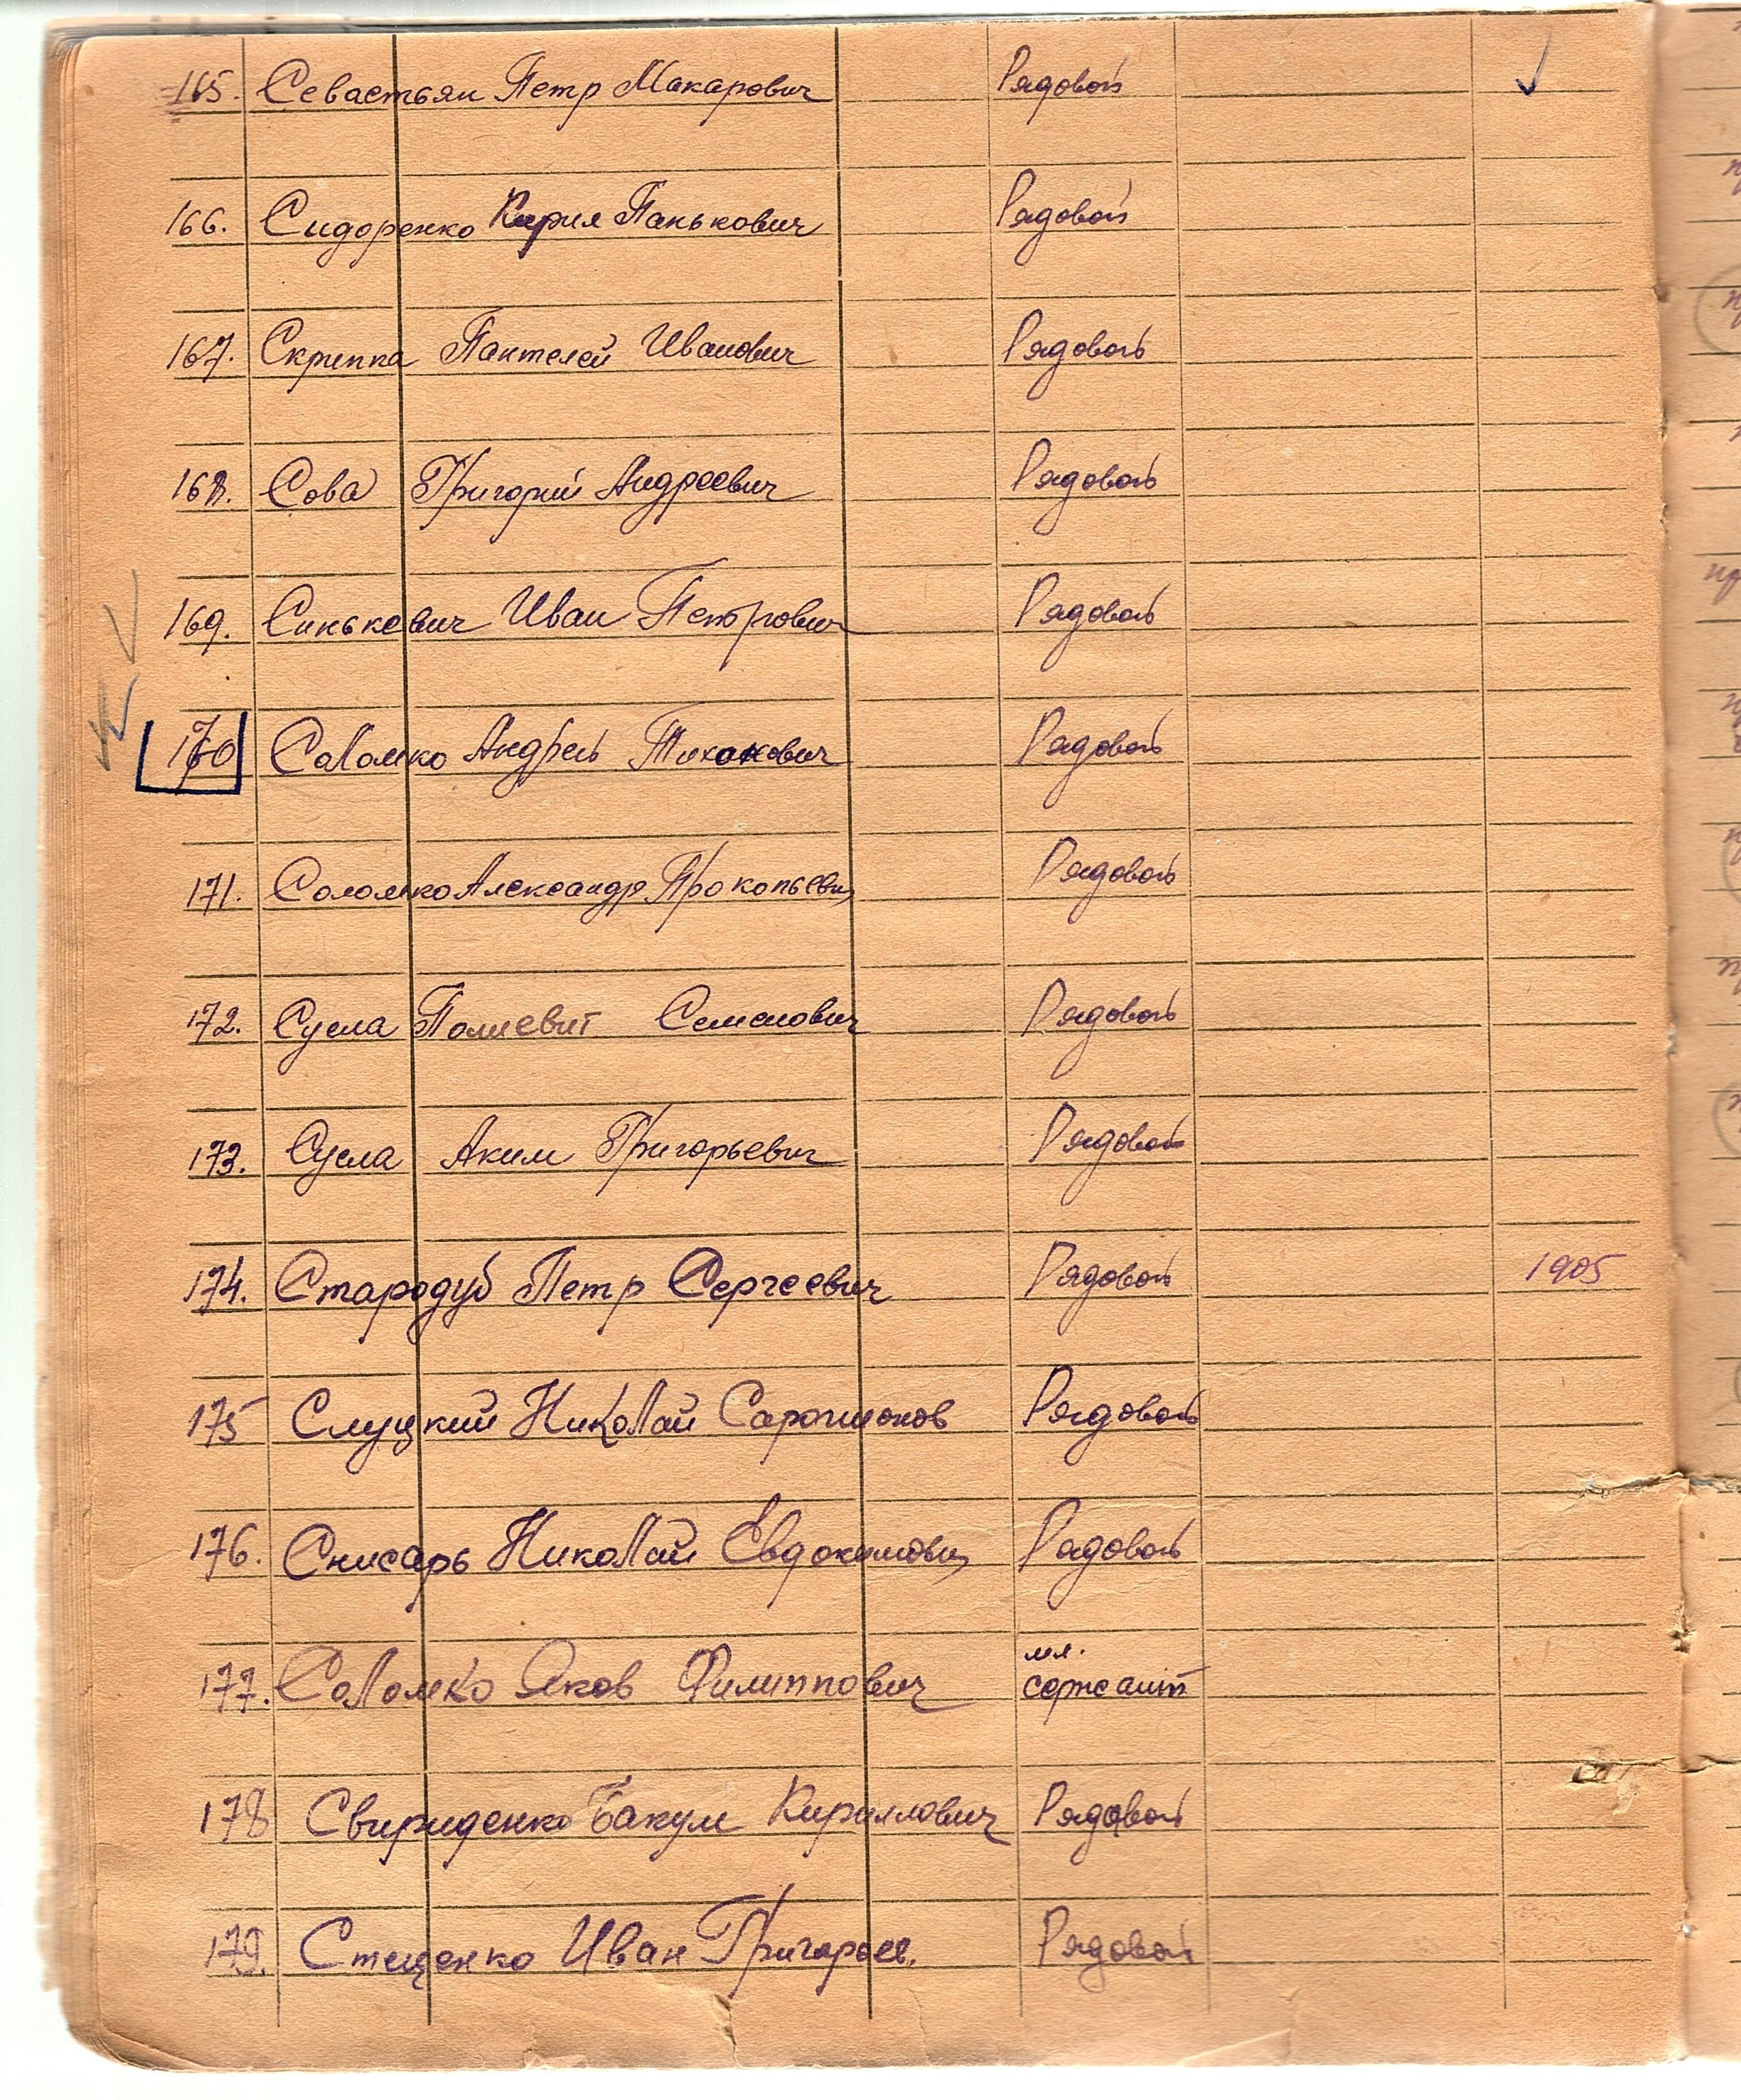 165. Севастьян Петр Макарович Рядовой
166. Сидоренко Кирил Панькович Рядовой
167. Скрипка Пантелей Иванович Рядовой
168. Сова Григорий Андреевич Рядовой
169. Синькович Иван Петрович Рядовой
170 Соломко Андрей Тихонович Рядовой
171. Соломко Александр Прокопьевич Рядовой
172. Сусла Полиевит Семенович Рядовой
173. Сусла Аким Григорьевич Рядовой
174. Стародуб Петр Сергеевич Рядовой 1905
175 Слуцкий Николай Рядовой
176. Снисарь Николай Евдокимович Рядовой
177. Соломко Яков Филиппович мл.
сержант
178 Свириденко Бакум Кириллович Рядовой
179. Стеценко Иван Григорьев. Рядовой